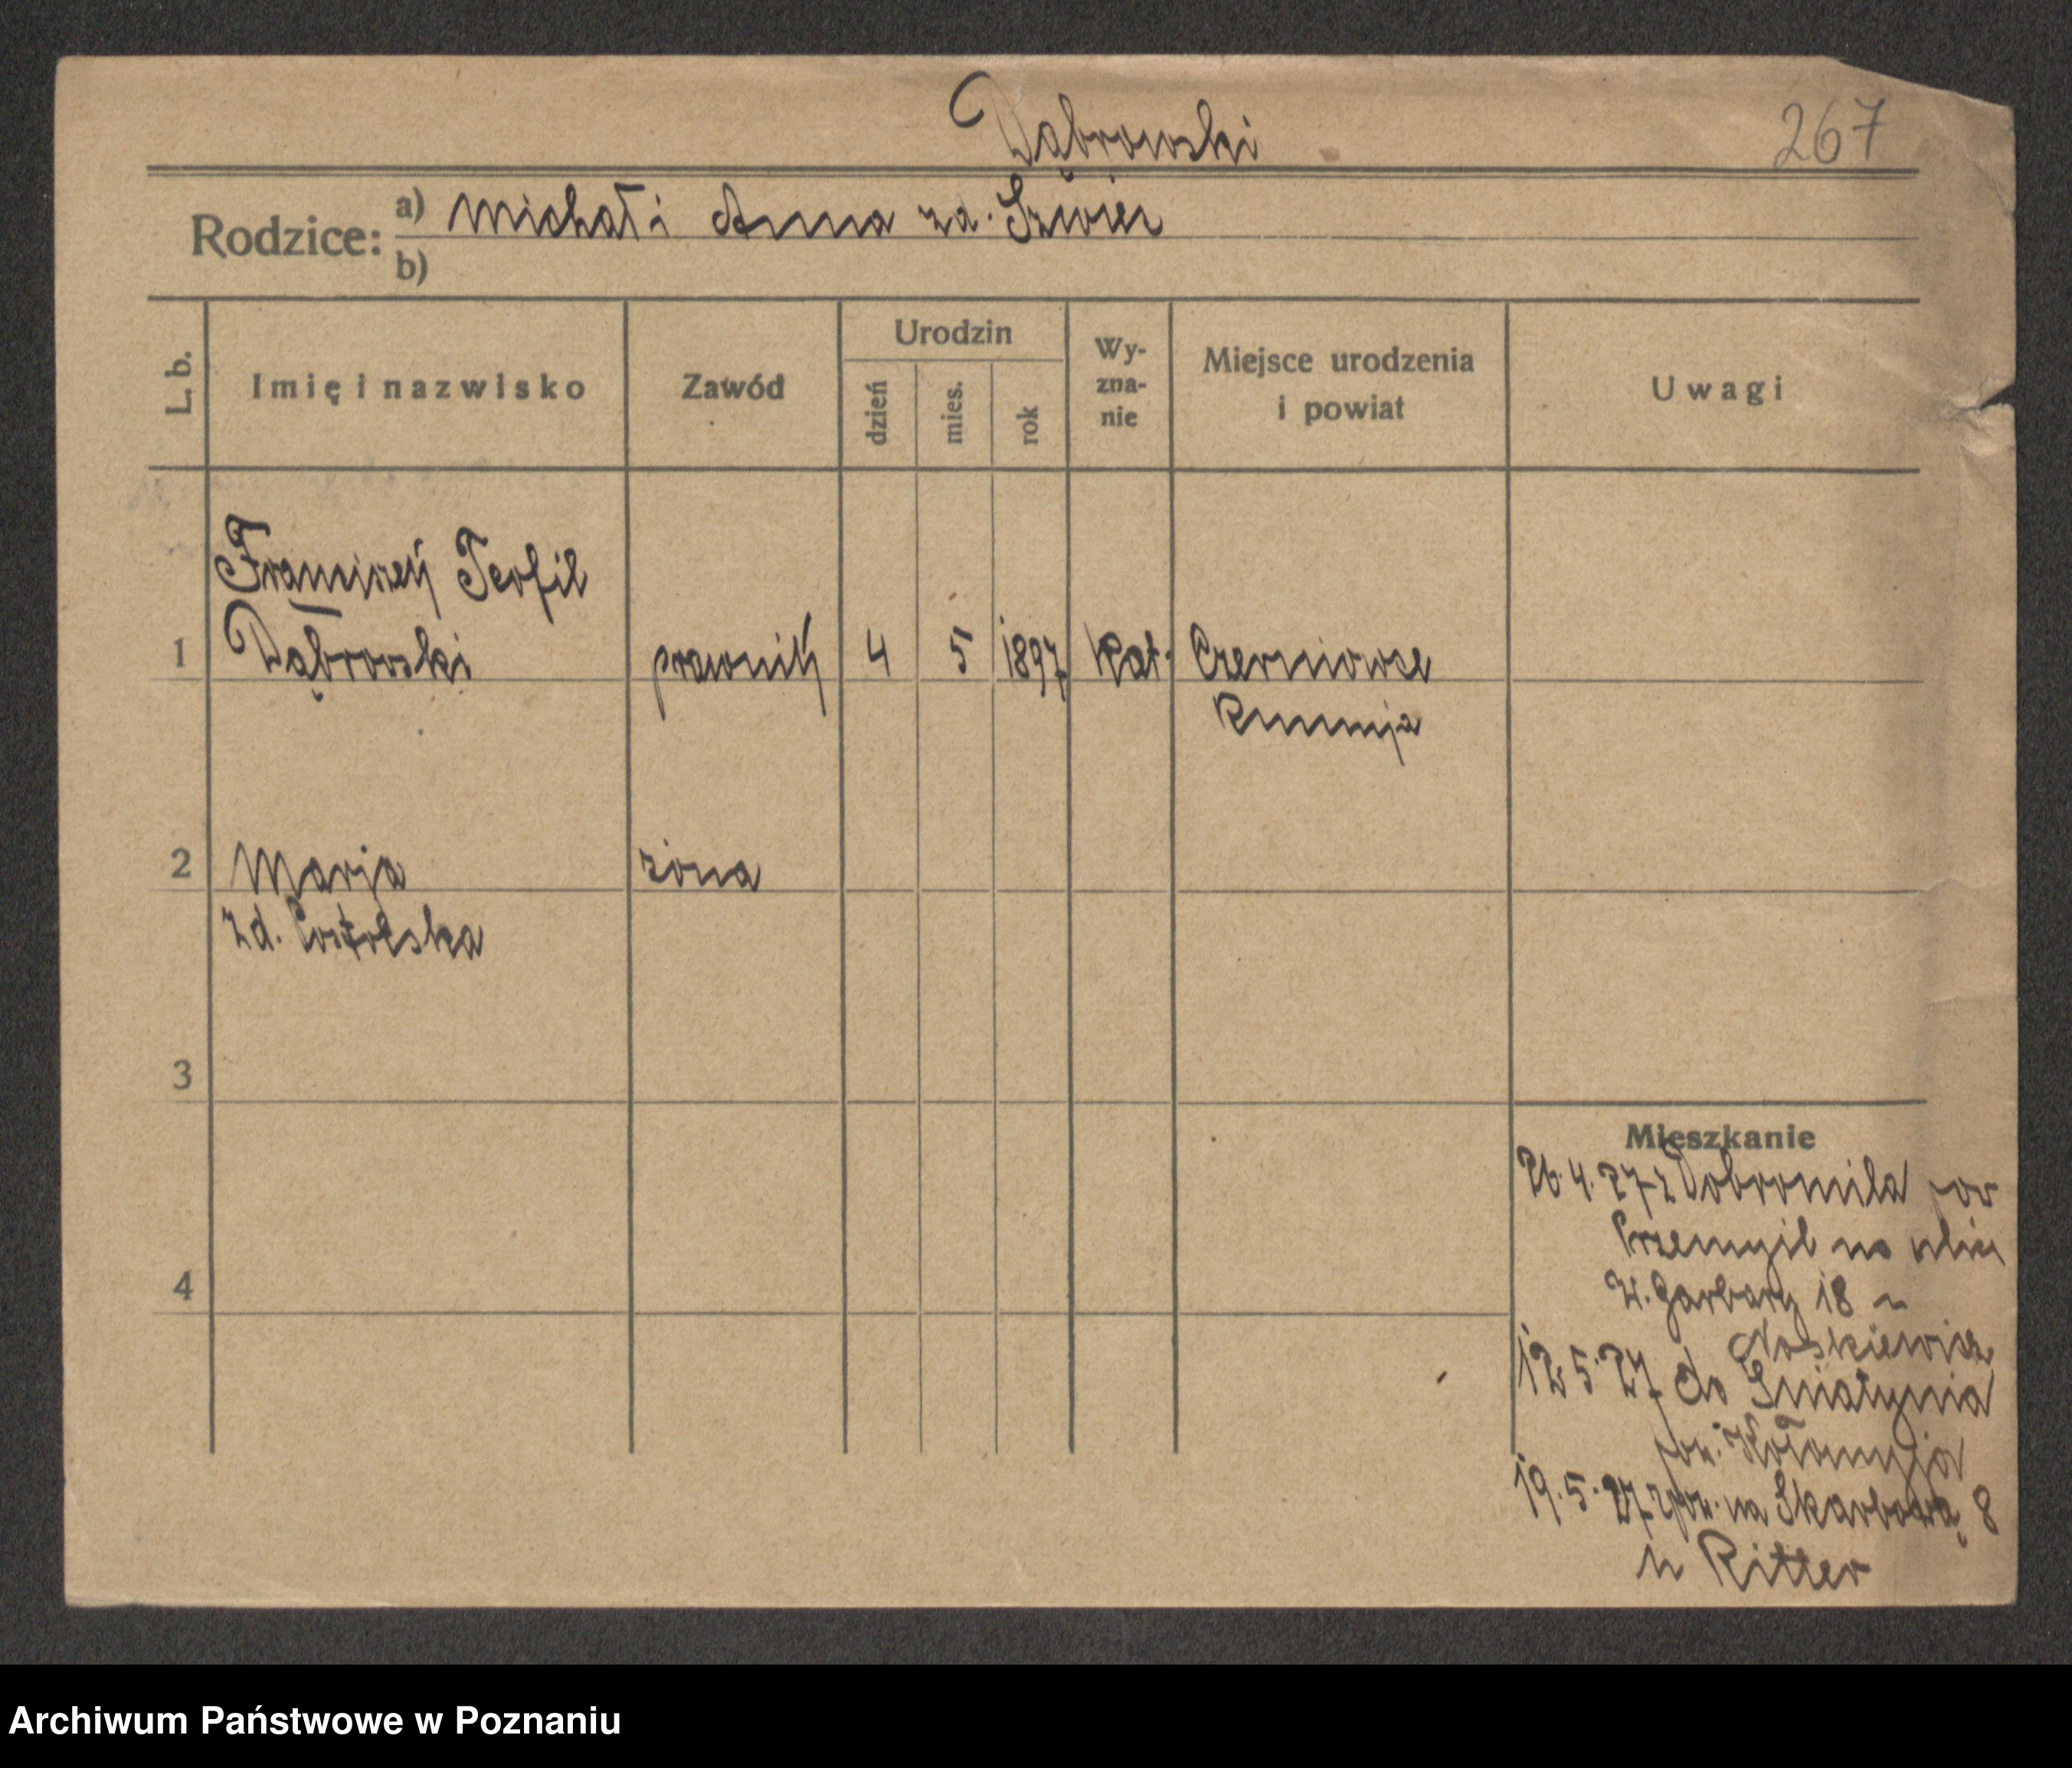 Dąbrowski
267
Rodzice: a) Michał i Anna zd. Szwier
b)
L. b. Imię i nazwisko Zawód Urodzin dzień mies. rok Wy-zna-nie Miejsce urodzenia i powiat Uwagi
Franciszek Teofil
1 Dąbrowski prawnik 4 5 1897 kat. Czerniowce
Rumunja
2 Marja żona
zd.
3
Mieszkanie
26.4.27 z Dobromila pow
Przemyśl na ulicę
W. Garbary 18 u
4
Noskiewicz
12.5.27 do Śniatynia
pow. Kołomyja
19.5.27 z pow. na Skarbową 8
u Ritter
Archiwum Państwowe w Poznaniu